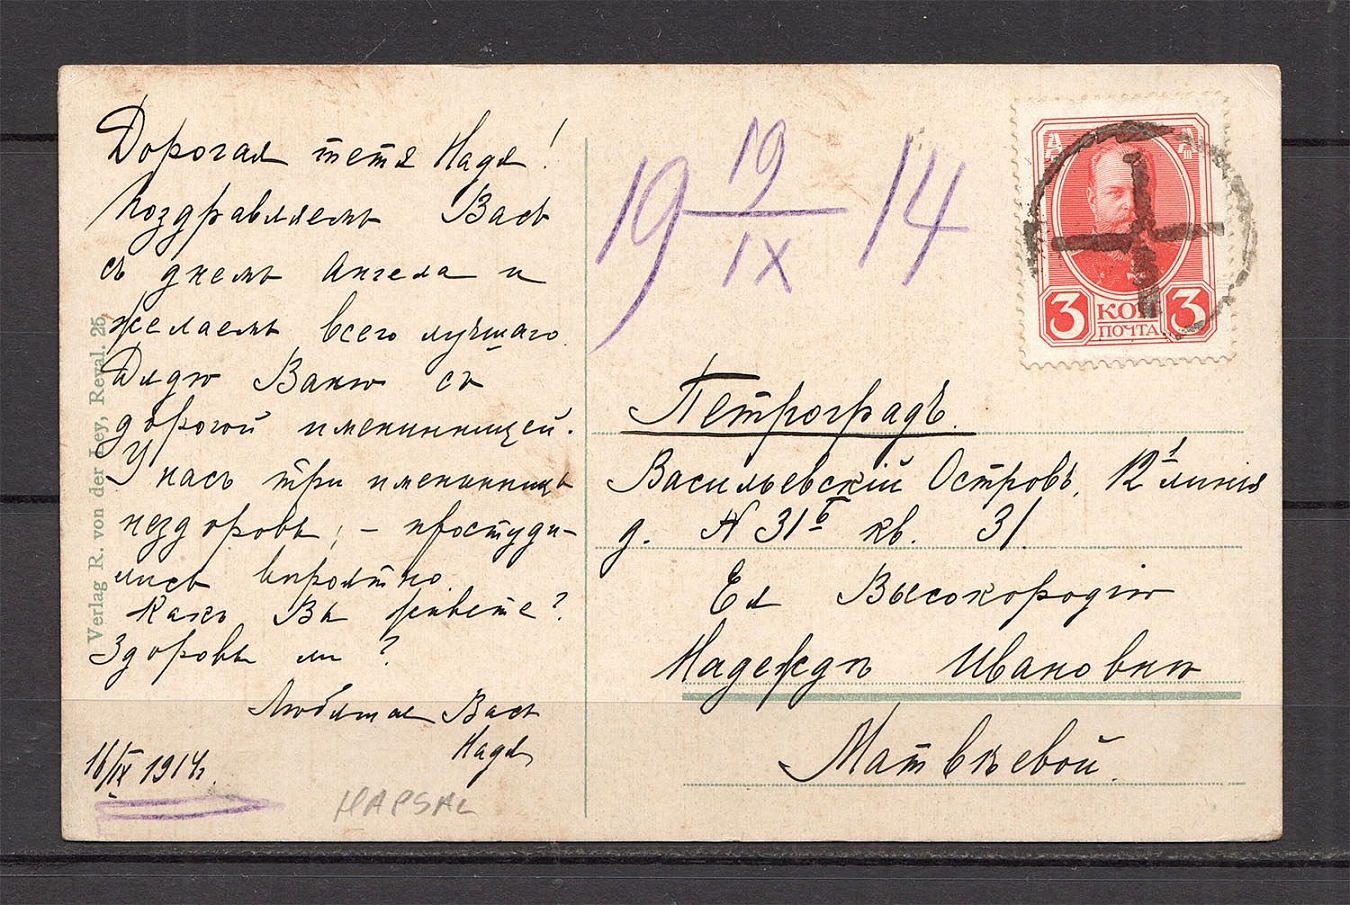 Дорогая тетя Надя!
Поздравляемъ Васъ
съ днемъ Ангела и
желаемъ всего лучшаго.
Дядю Ваню съ
дорогой именинницей.
У насъ три именинницы
нездоровы, – простуди-
лись вѣроятно.
Какъ Вы живете?
Здоровы ли?
Любящая Васъ
Надя
16/IX 1914 г.
HAPSAL
Verlag R. von der Ley, Reval. 25.
19 19/IX 14
3 КОП 3
ПОЧТА
Петроградъ.
Васильевскій Островъ, 12 линія
д. № 31 б кв. 31
Ея Высокородію
Надеждѣ Ивановнѣ
Матвѣевой.